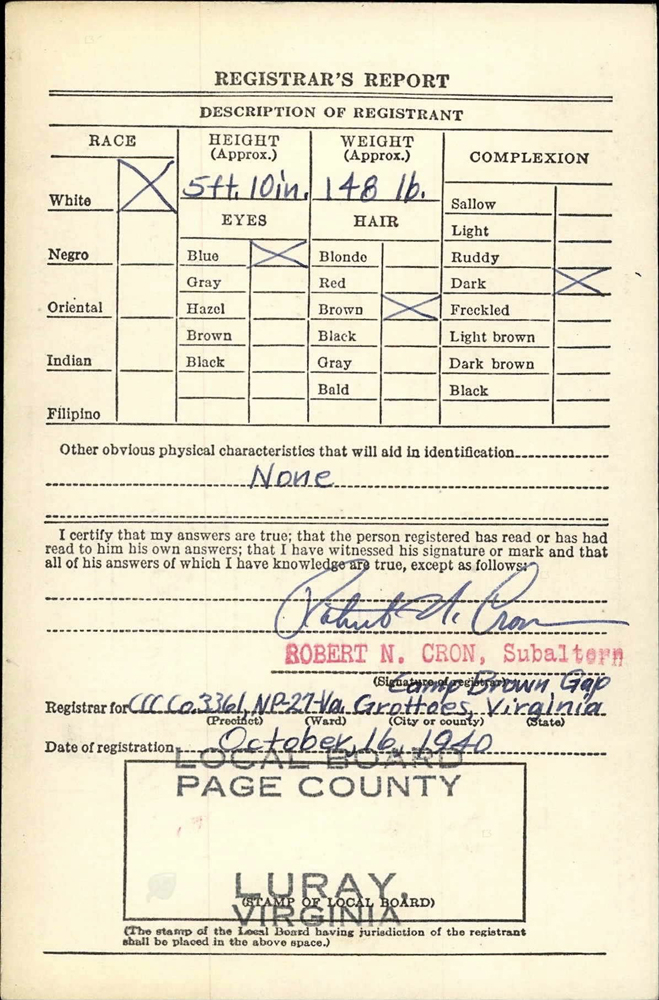 REGISTRAR'S REPORT
DESCRIPTION OF REGISTRANT
RACE
HEIGHT
(Approx.)
WEIGHT
(Approx.)
COMPLEXION
5 ft. 10 in.
148 lb.
White
X
EYES
HAIR
Sallow
Light
Negro
Blue
X
Blonde
Ruddy
Gray
Red
Dark
X
Oriental
Hazel
Brown
X
Freckled
Brown
Black
Light brown
Indian
Black
Gray
Dark brown
Bald
Black
Filipino
Other obvious physical characteristics that will aid in identification
None
I certify that my answers are true; that the person registered has read or has had
read to him his own answers; that I have witnessed his signature or mark and that
all of his answers of which I have knowledge are true, except as follows:
Robert N. Cron
ROBERT N. CRON, Subaltern
(Signature of registrar)
Camp Brown Gap
Registrar for CCC Co. 3361, NP-27-Va. Grottoes, Virginia
(Precinct) (Ward) (City or county) (State)
Date of registration October 16, 1940
LOCAL BOARD
PAGE COUNTY
LURAY,
(STAMP OF LOCAL BOARD)
VIRGINIA
(The stamp of the Local Board having jurisdiction of the registrant
shall be placed in the above space.)